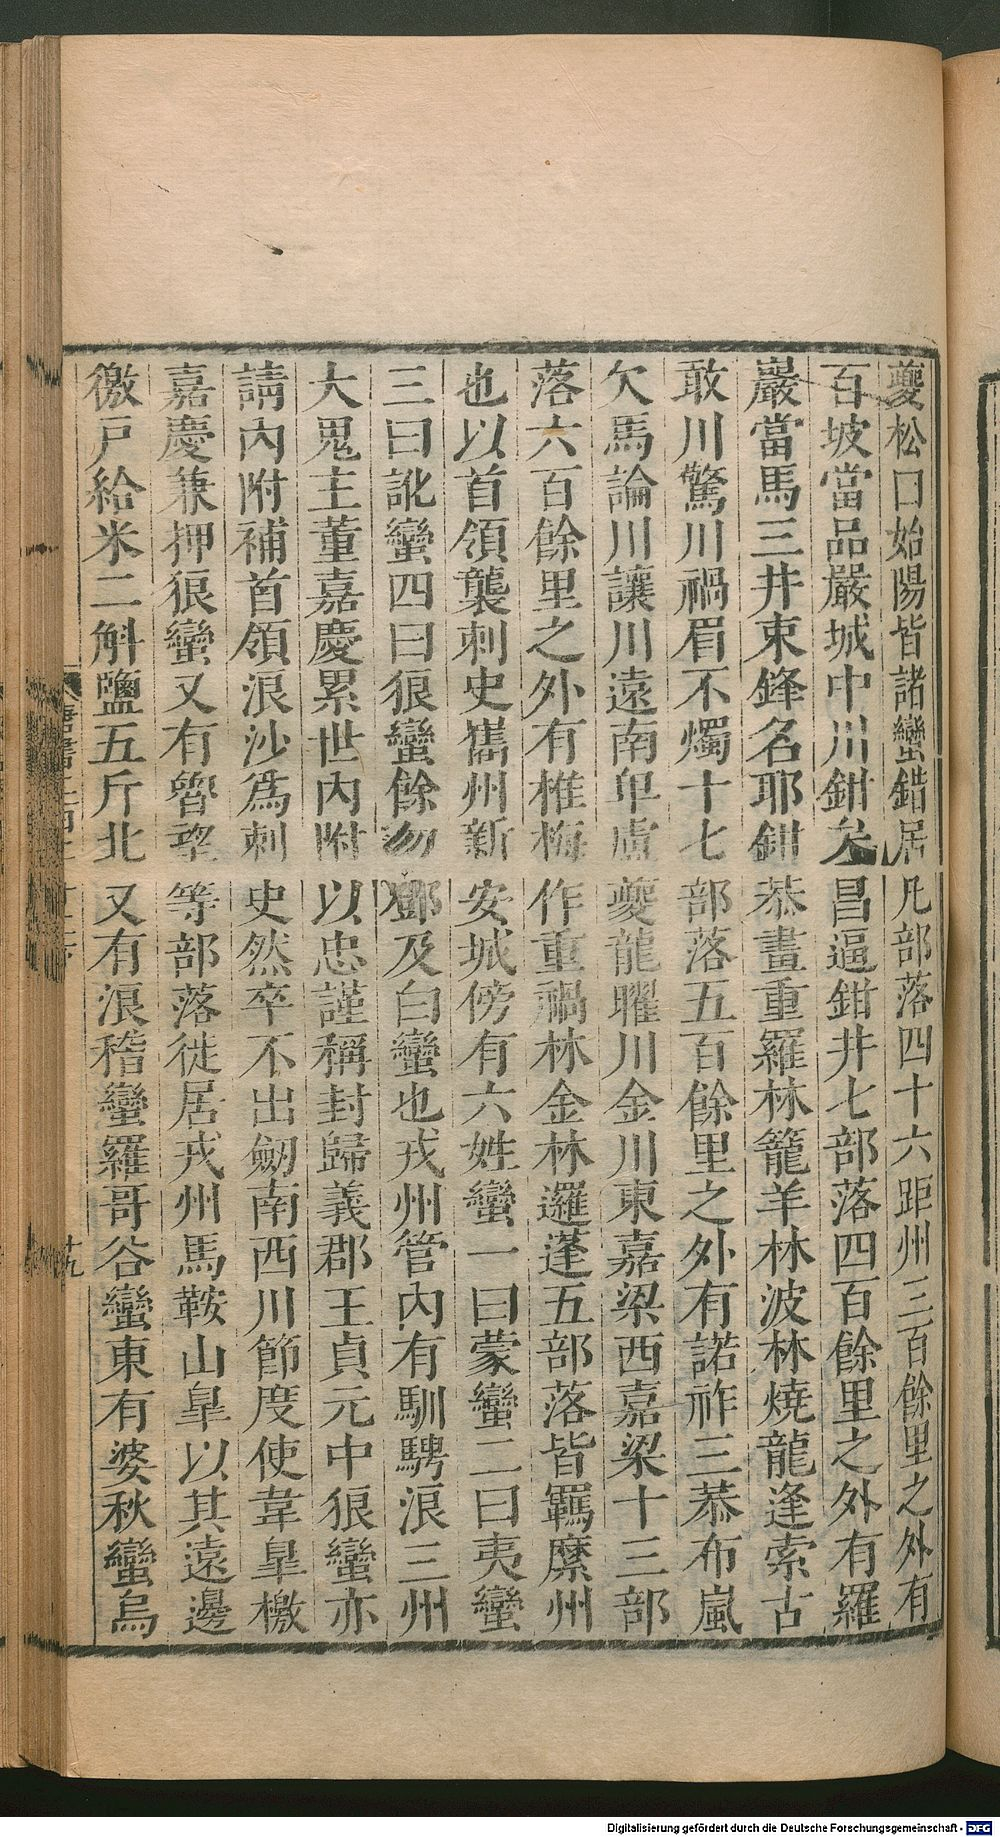 夔松口始陽皆諸蠻錯居凡部落四十六距州三百餘里之外有
百坡當品嚴城中川鉗矣昌逼鉗井七部落四百餘里之外有羅
巖當馬三井束鋒名耶鉗恭畫重羅林籠羊林波林燒龍逢索古
敢川驚川禍眉不燭十七部落五百餘里之外有諾祚三恭布嵐
欠馬論川讓川遠南卑盧夔龍曜川金川東嘉梁西嘉梁十三部
落六百餘里之外有椎梅作重禍林金林邏蓬五部落皆羈縻州
也以首領襲刺史巂州新安城傍有六姓蠻一曰蒙蠻二曰夷蠻
三曰訛蠻四曰狼蠻餘勿鄧及白蠻也戎州管內有馴騁浪三州
大鬼主董嘉慶累世內附以忠謹稱封歸義郡王貞元中狼蠻亦
請內附補首領浪沙爲刺史然卒不出劒南西川節度使韋臯檄
嘉慶兼押狼蠻又有魯望等部落徙居戎州馬鞍山臯以其遠邊
徼戸給米二斛鹽五斤北又有浪稽蠻羅哥谷蠻東有婆秋蠻烏
十九
Digitalisierung gefördert durch die Deutsche Forschungsgemeinschaft - DFG